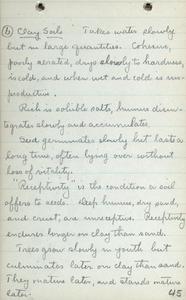 (b) Clay Soils Takes water slowly
but in large quantities. Cohesive,
poorly aerated, dries slowly to hardness,
is cold, and when wet and cold is un-
productive.
Rich is soluble salts, humus disin-
tegrates slowly and accumulates.
Seed germinates slowly but lasts a
long time, often lying over without
loss of vitality.
"Receptivity" is the condition a soil
offers to seeds. Deep humus, dry sand,
and crust, are unreceptive. Receptivity
endures longer on clay than sand.
Trees grow slowly in youth but
culminates later on clay than sand.
They mature later, and stands mature
later.
45